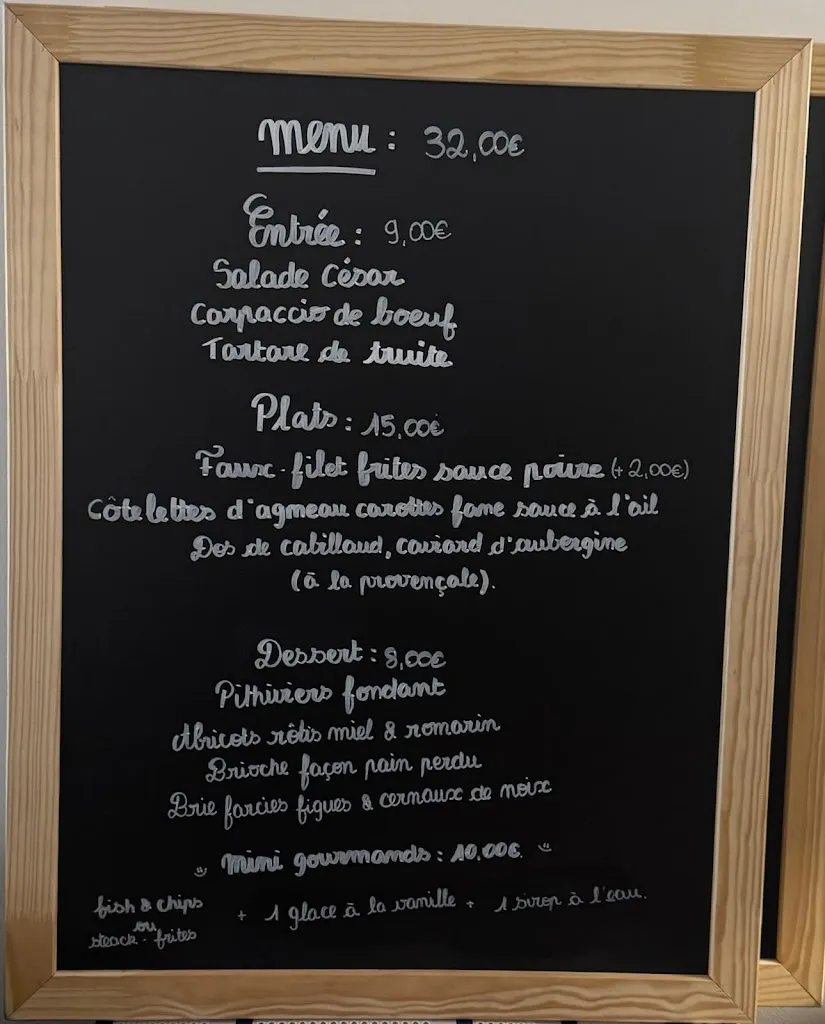 menu : 32,00€
Entrée : 9,00€
Salade César
Carpaccio de boeuf
Tartare de truite
Plats : 15,00€
Faux-filet frites sauce poivre (+ 2,00€)
Côtelettes d'agneau carottes fane sauce à l'ail
Dos de cabillaud, caviard d'aubergine
(à la provençale).
Dessert : 8,00€
Pithiviers fondant
Abricots rôtis miel & romarin
Brioche façon pain perdu
Brie farcies figues & cernaux de noix
mini gourmands : 10.00€
fish & chips
ou
steack-frites
+ 1 glace à la vanille + 1 sirop à l'eau.